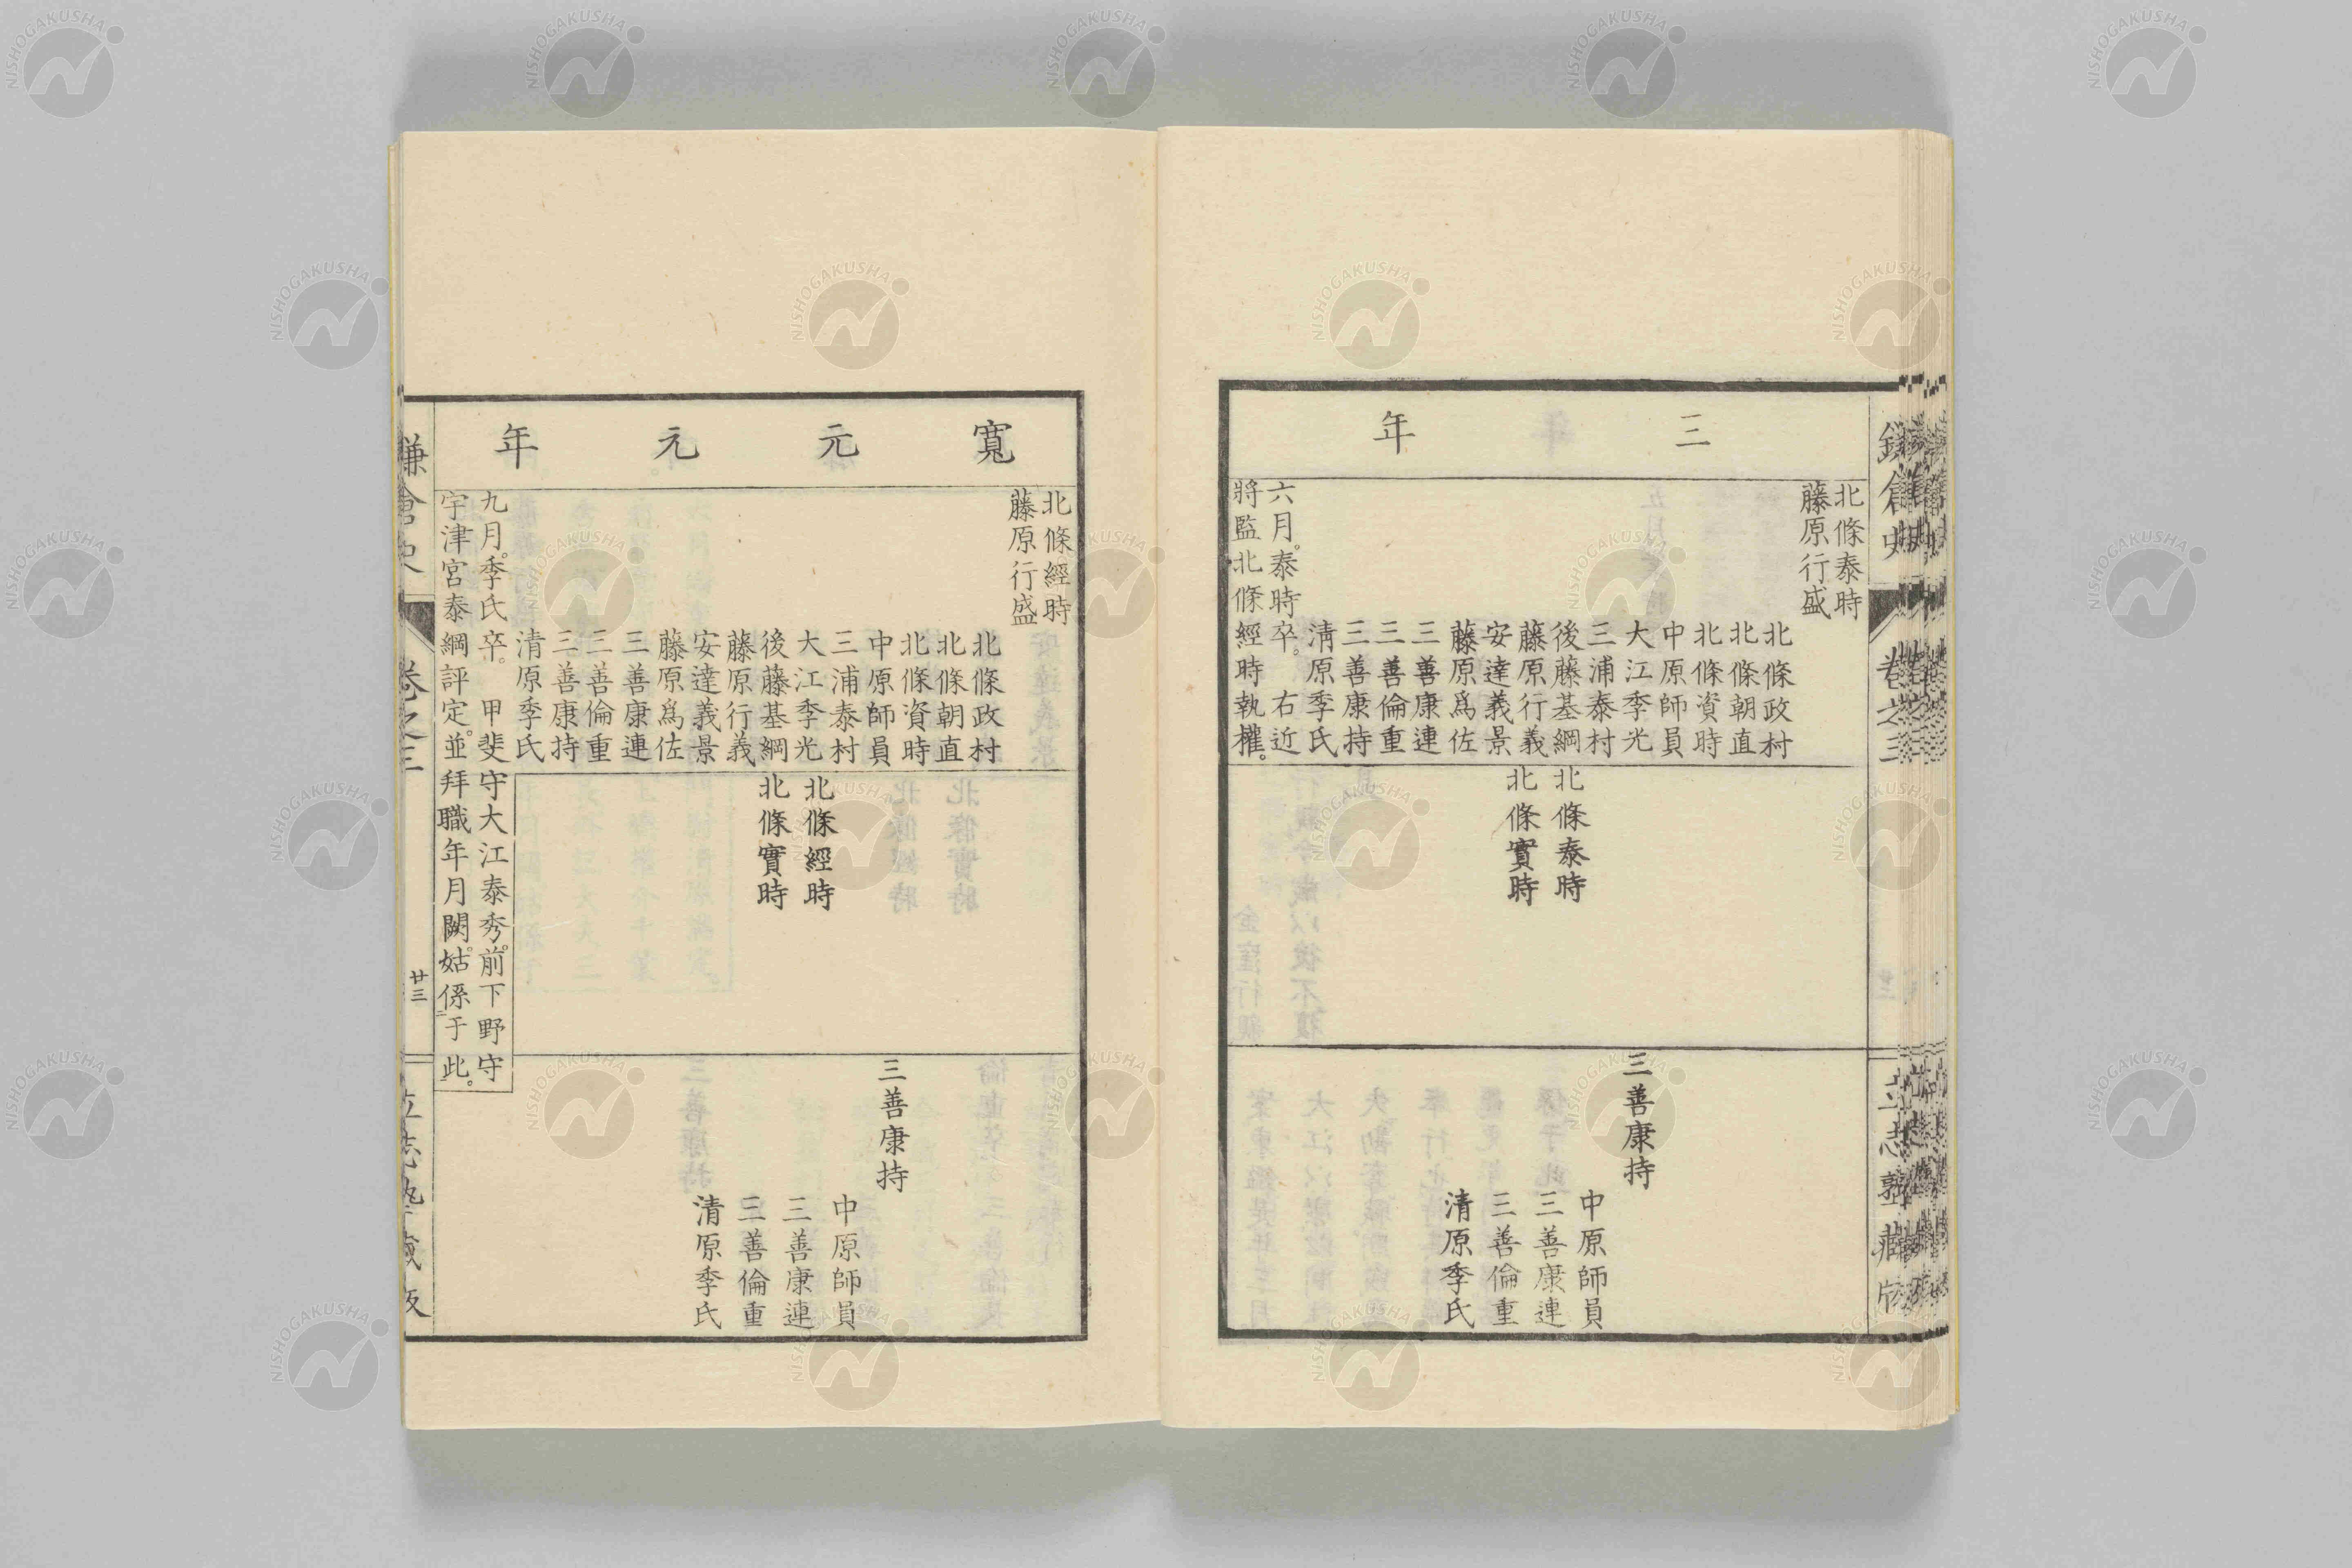 三年
北條泰時
藤原行盛
北條政村
北條朝直
北條資時
中原師員
大江季光
三浦泰村
後藤基綱
藤原行義
安達義景
藤原爲佐
三善康連
三善倫重
三善康持
清原季氏
六月。泰時卒。右近
將監北條經時執權。
北條泰時
北條實時
三善康持
中原師員
三善康連
三善倫重
清原季氏
卷之三
寬元元年
北條經時
藤原行盛
北條政村
北條朝直
北條資時
中原師員
三浦泰村
大江季光
後藤基綱
藤原行義
安達義景
藤原爲佐
三善康連
三善倫重
三善康持
清原季氏
九月。季氏卒。甲斐守大江泰秀。前下野守
宇津宮泰綱評定。並拜職年月闕。姑係于此。
北條經時
北條實時
三善康持
中原師員
三善康連
三善倫重
清原季氏
鎌倉史
卷之三
廿三
立志塾藏版
NISHOGAKUSHA